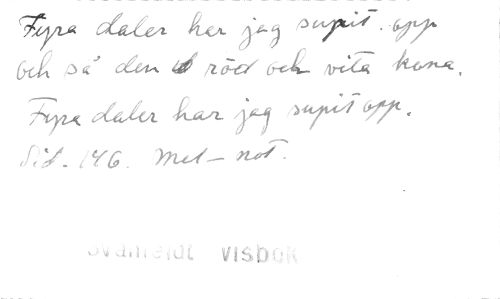 Fyra daler har jag supit opp
och så den röd och vita kona.
Fyra daler har jag supit opp.
Sid. 146. Mel-not.
visbok